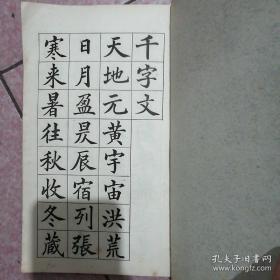 千字文
天地元黄宇宙洪荒
日月盈昃辰宿列張
寒来暑往秋收冬藏
孔夫子旧书网